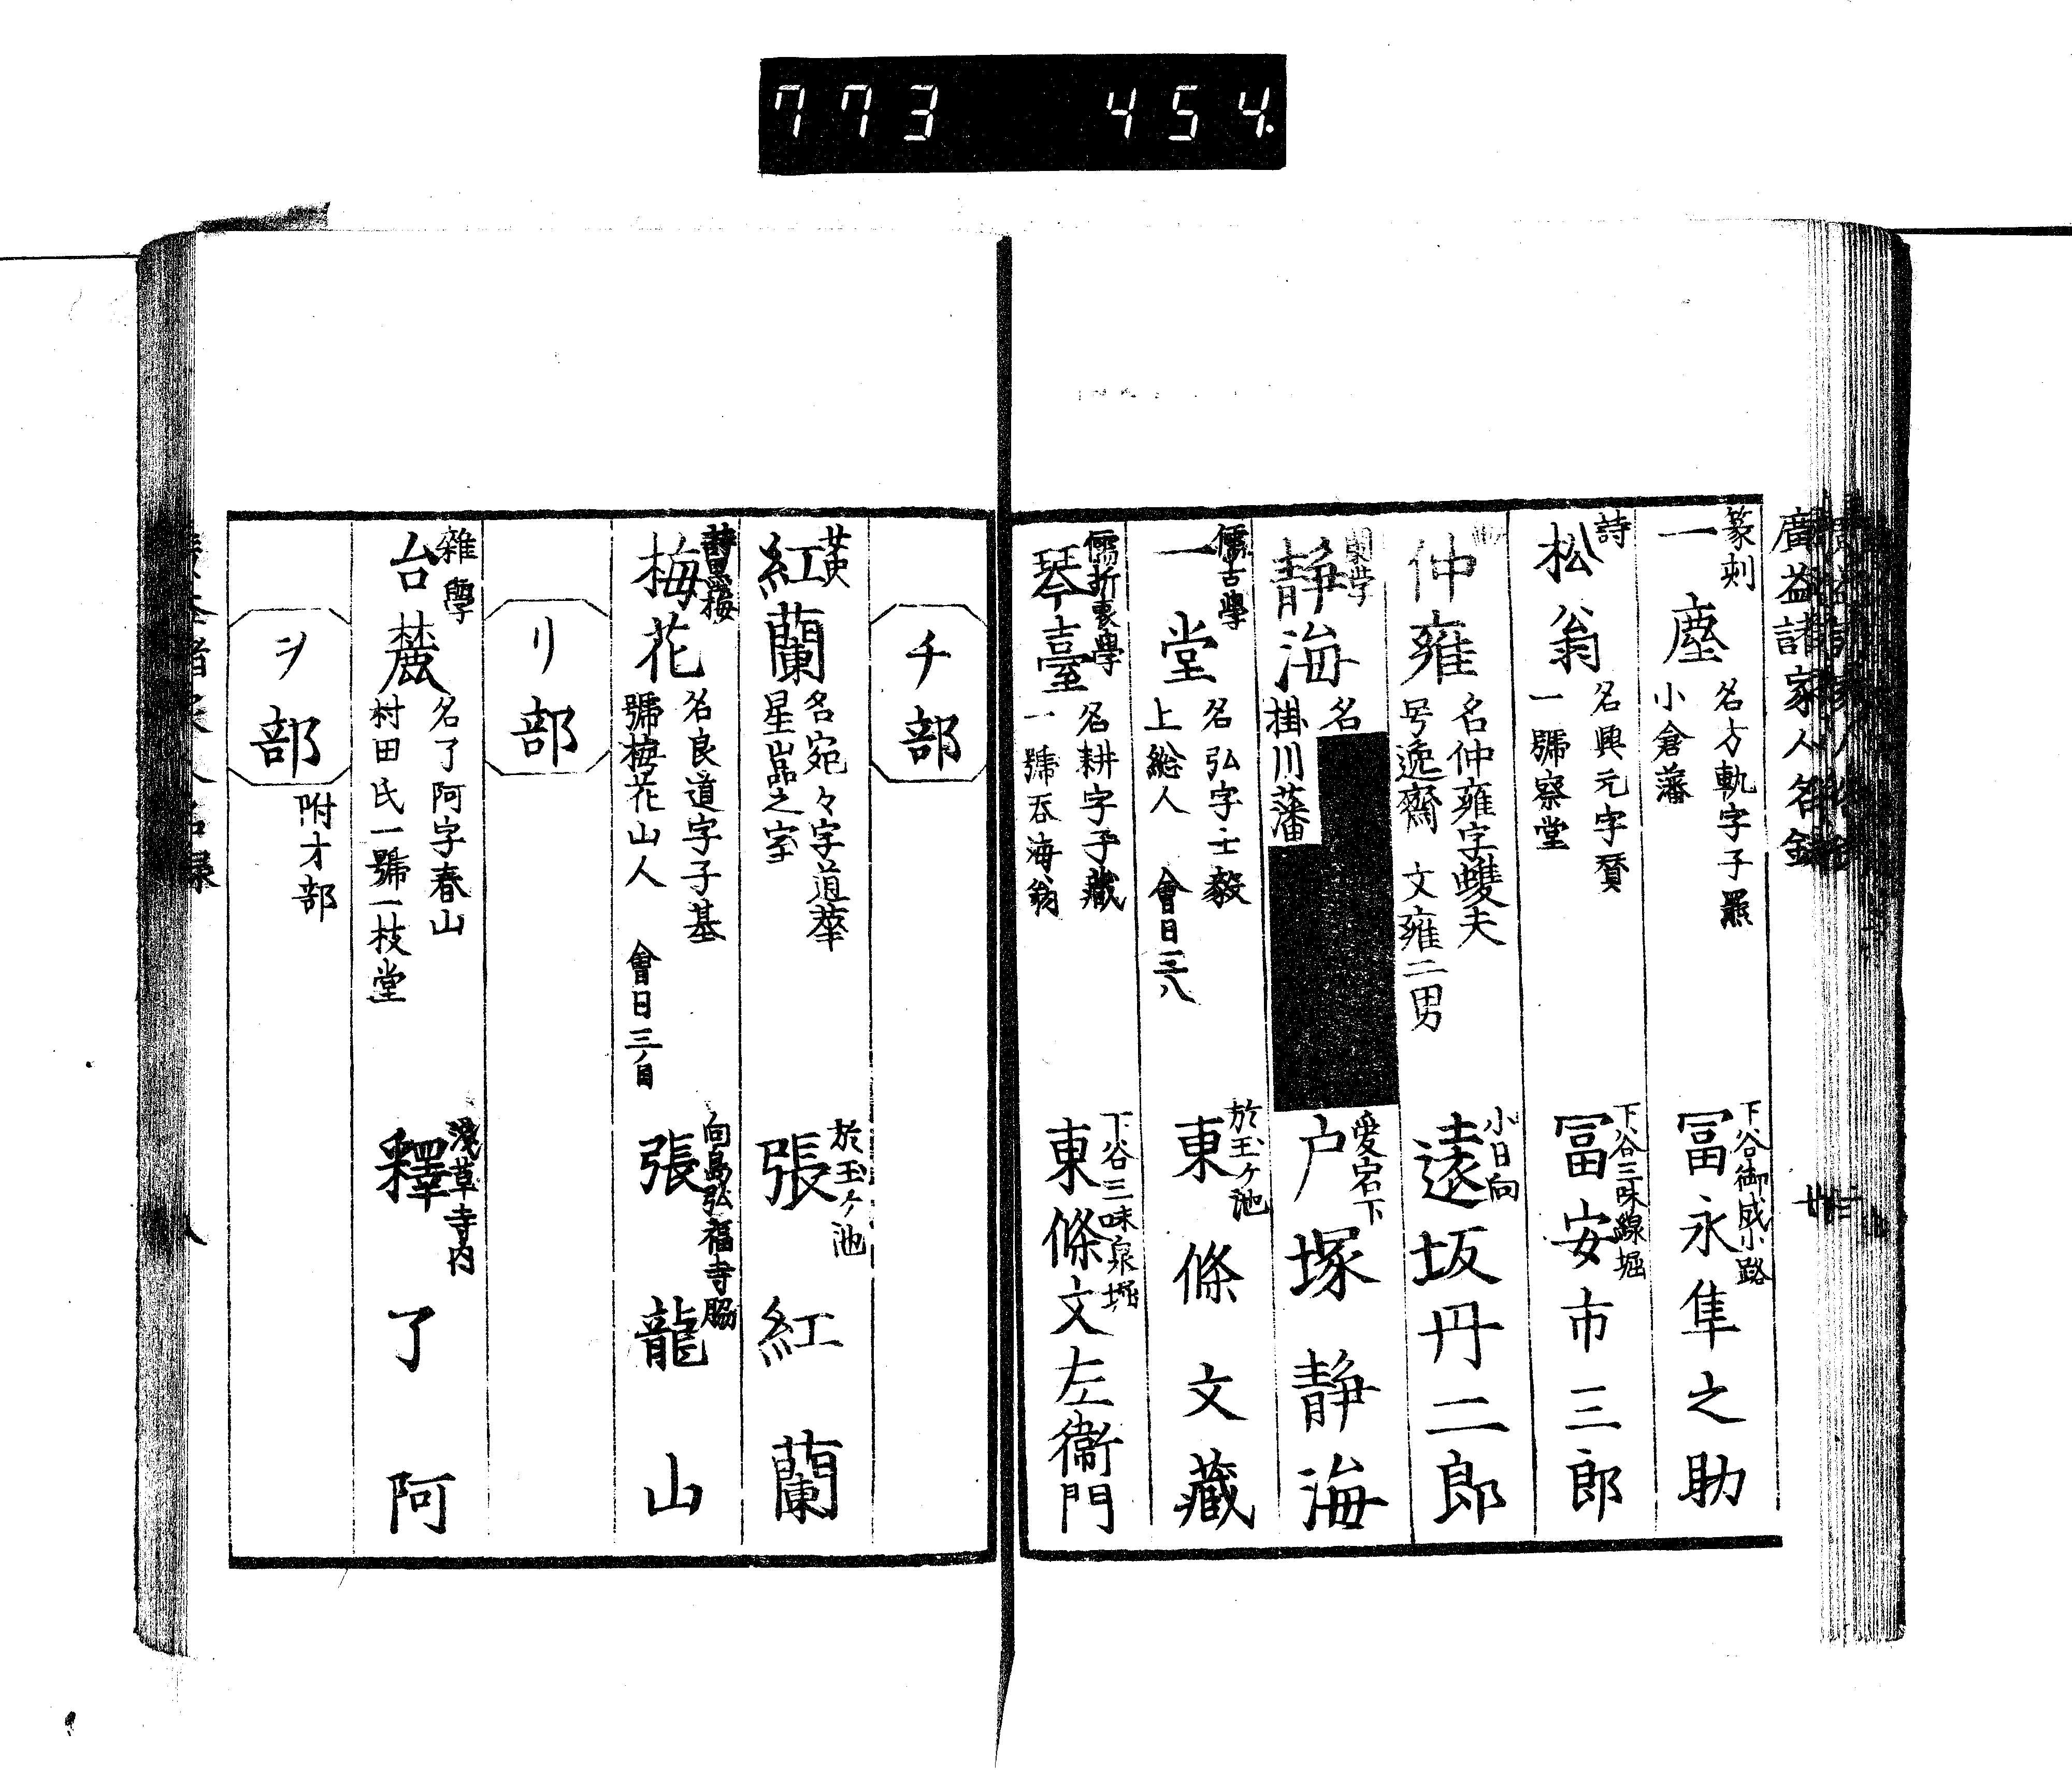 773 454.
廣益諸家人名錄
篆刻
一塵
名方軌字子羆
小倉藩
下谷御成小路
冨永隼之助
詩
松翁
名興元字賚
一號察堂
下谷三味線堀
冨安市三郎
仲雍
名仲雍字雙夫
号逸齋 文雍二男
小日向
遠坂丹二郎
蘭学
静海
名
掛川藩
愛宕下
戸塚静海
儒古學
一堂
名弘字士毅
上総人 會日三八
於玉ヶ池
東條文藏
儒折衷學
琴臺
名耕字子藏
一號吞海翁
下谷三味泉堀
東條文左衞門
チ部
黄
紅蘭
名宛々字道華
星巖之室
於玉ヶ池
張紅蘭
梅花
名良道字子基
號梅花山人 會日三ノ日
向島弘福寺脇
張龍山
リ部
雜學
台麓
名了阿字春山
村田氏一號一枝堂
淺草寺内
釋了阿
ヲ部
附オ部